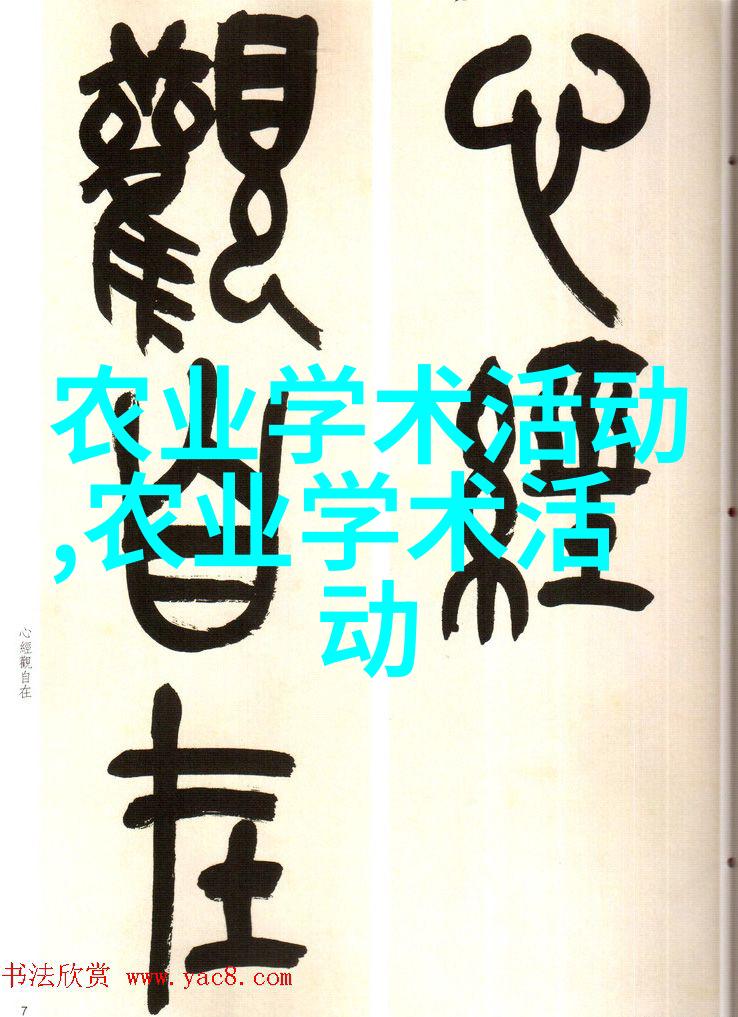 心經
觀自在
農业学术活动
,农业学术活
动
心經觀自在
书法欣赏 www.yac8.com
7